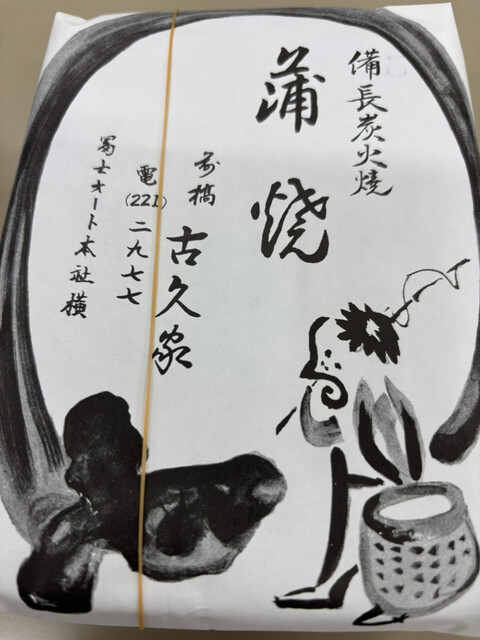 備長炭火焼
蒲焼
前橋
古久家
電
(221)
二九七七
冨士オート本社横